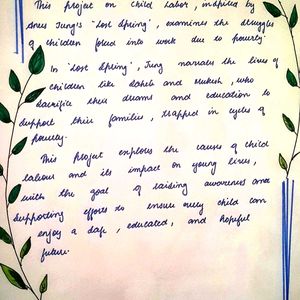 This project on Child Labor, inspired by
Anees Jung's "Lost Spring", examines the struggles
of children forced into work due to poverty.
In "Lost Spring", Jung narrates the lives of
children like Saheb and Mukesh, who
sacrifice their dreams and education to
support their families, trapped in cycles of
poverty.
This project explores the causes of child
labour and its impact on young lives,
with the goal of raising awareness and
supporting efforts to ensure every child can
enjoy a safe, educated, and hopeful
future.